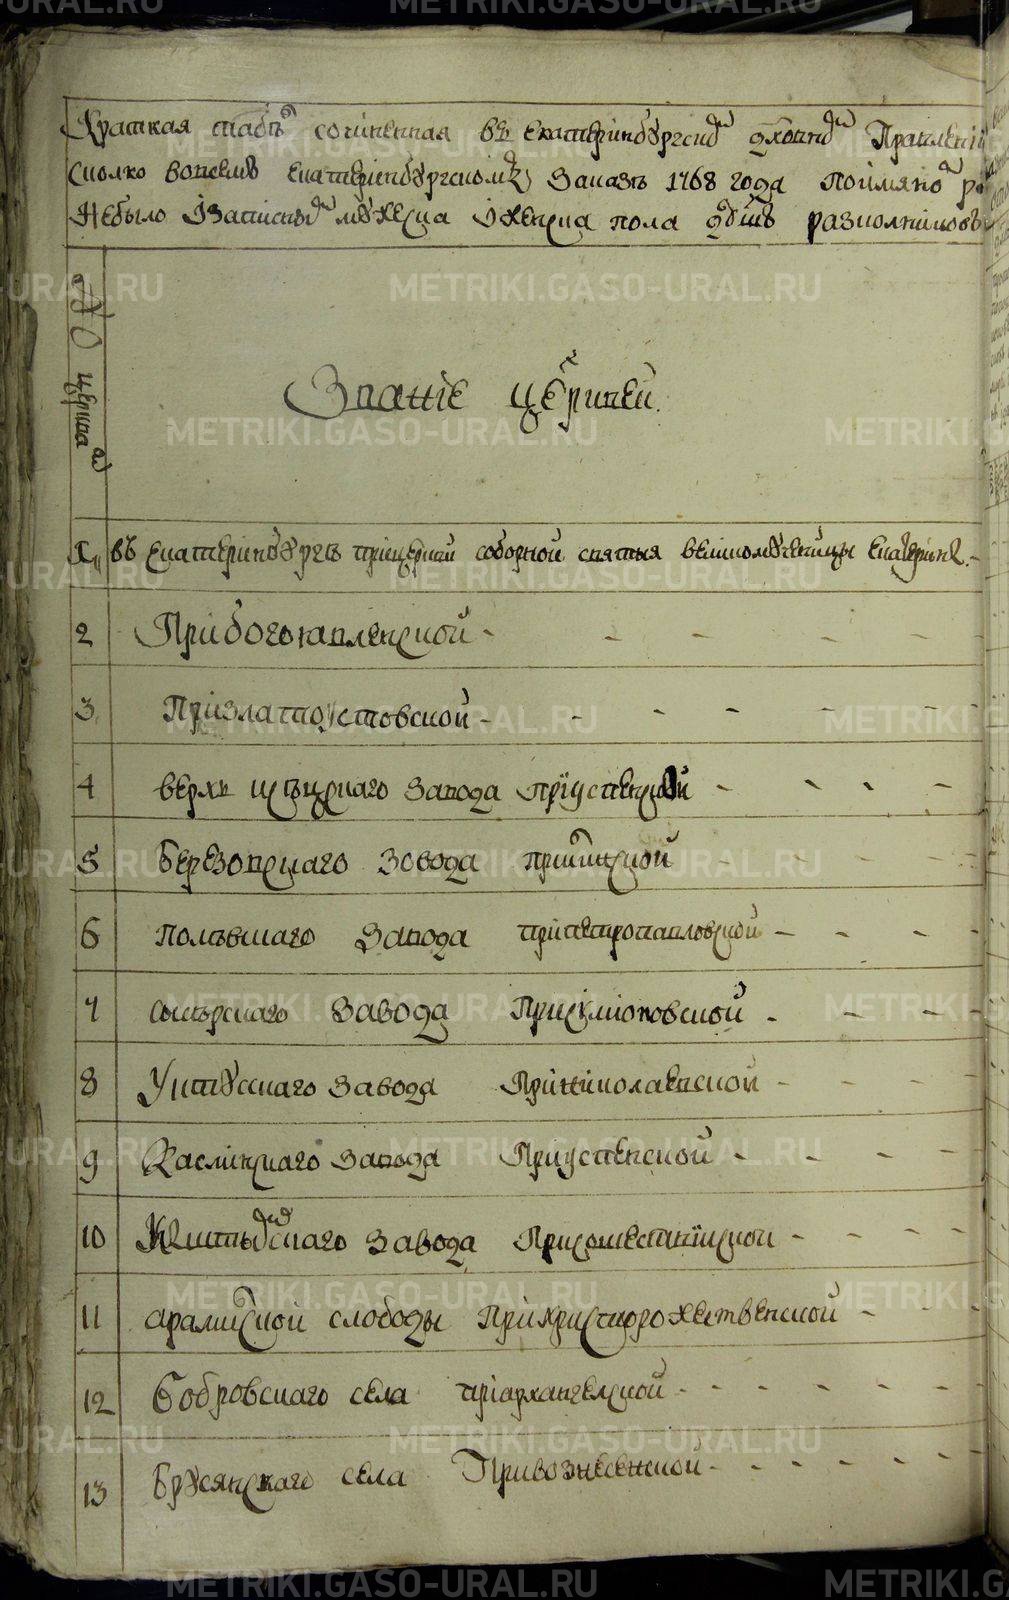 Краткая табель сочиненная въ Екатерінбургскомъ духовномъ Правленіи
сколко вовсемъ Екатерінбургскомъ Заказѣ 1768 года
Небыло Ізаписныхъ мужеска Іженска пола душъ разколниковъ
№ церквамъ
Званіе церквей.
1 въ Екатерінбургѣ прицеркви соборной святыя великомученицы Екатерины.
2 Прибогоявленской
3 Призлатоустовской
4 верхъ исецкаго Завода приуспенской
5 Березовскаго Зовода при
6 Полѣвшаго Завода припетропавловской
7 сысерскаго Завода Присимионовской
8 Уктусскаго Завода Приниколаевской
9 Каслинскаго Завода Приуспенской
10 Кыштымскаго Завода Присошественской
11 арамилской слободы Прихристорожественской
12 Бобровскаго села приархангелской
13 Брусянскаго села Привознесенской
METRIKI.GASO-URAL.RU